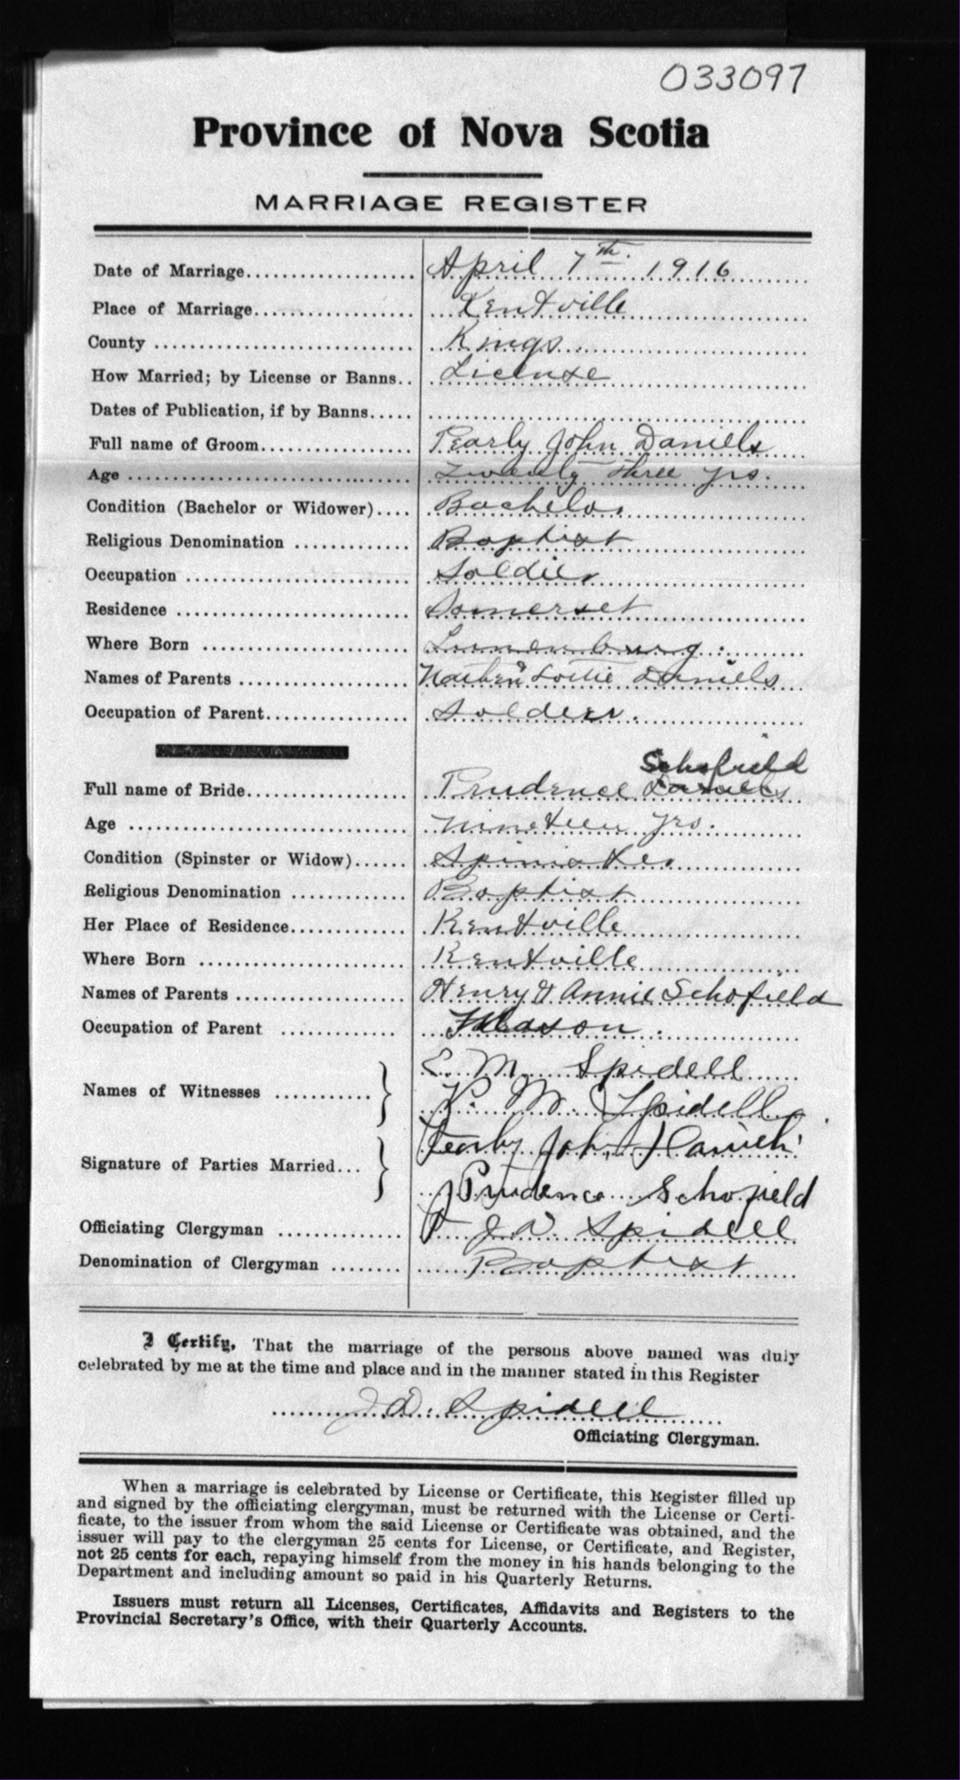 033097
Province of Nova Scotia
MARRIAGE REGISTER
Date of Marriage................... April 7th 1916
Place of Marriage.................. Kentville
County ............................. Kings
How Married; by License or Banns.. License
Dates of Publication, if by Banns.....
Full name of Groom................. Pearly John Daniels
Age ................................ Twenty three yrs.
Condition (Bachelor or Widower).... Bachelor
Religious Denomination ............. Baptist
Occupation ......................... Soldier
Residence .......................... Somerset
Where Born ........................ Lunenburg.
Names of Parents ................... & Lottie Daniels
Occupation of Parent................ Soldier.
Schofield
Full name of Bride.................. Prudence Daniels
Age ................................ Nineteen yrs.
Condition (Spinster or Widow)...... Spinster
Religious Denomination ............. Baptist
Her Place of Residence............. Kentville
Where Born ........................ Kentville
Names of Parents ................... Henry & Annie Schofield
Occupation of Parent .............. Mason.
E. M. Spidell
Names of Witnesses ............ }
P. M. Spidell
Pearly John Daniels
Signature of Parties Married... }
Prudence Schofield
Officiating Clergyman .............. J D Spidell
Denomination of Clergyman ........ Baptist
I Certify, That the marriage of the persons above named was duly
celebrated by me at the time and place and in the manner stated in this Register
J D. Spidell
Officiating Clergyman.
When a marriage is celebrated by License or Certificate, this Register filled up
and signed by the officiating clergyman, must be returned with the License or Certi-
ficate, to the issuer from whom the said License or Certificate was obtained, and the
issuer will pay to the clergyman 25 cents for License, or Certificate, and Register,
not 25 cents for each, repaying himself from the money in his hands belonging to the
Department and including amount so paid in his Quarterly Returns.
Issuers must return all Licenses, Certificates, Affidavits and Registers to the
Provincial Secretary's Office, with their Quarterly Accounts.